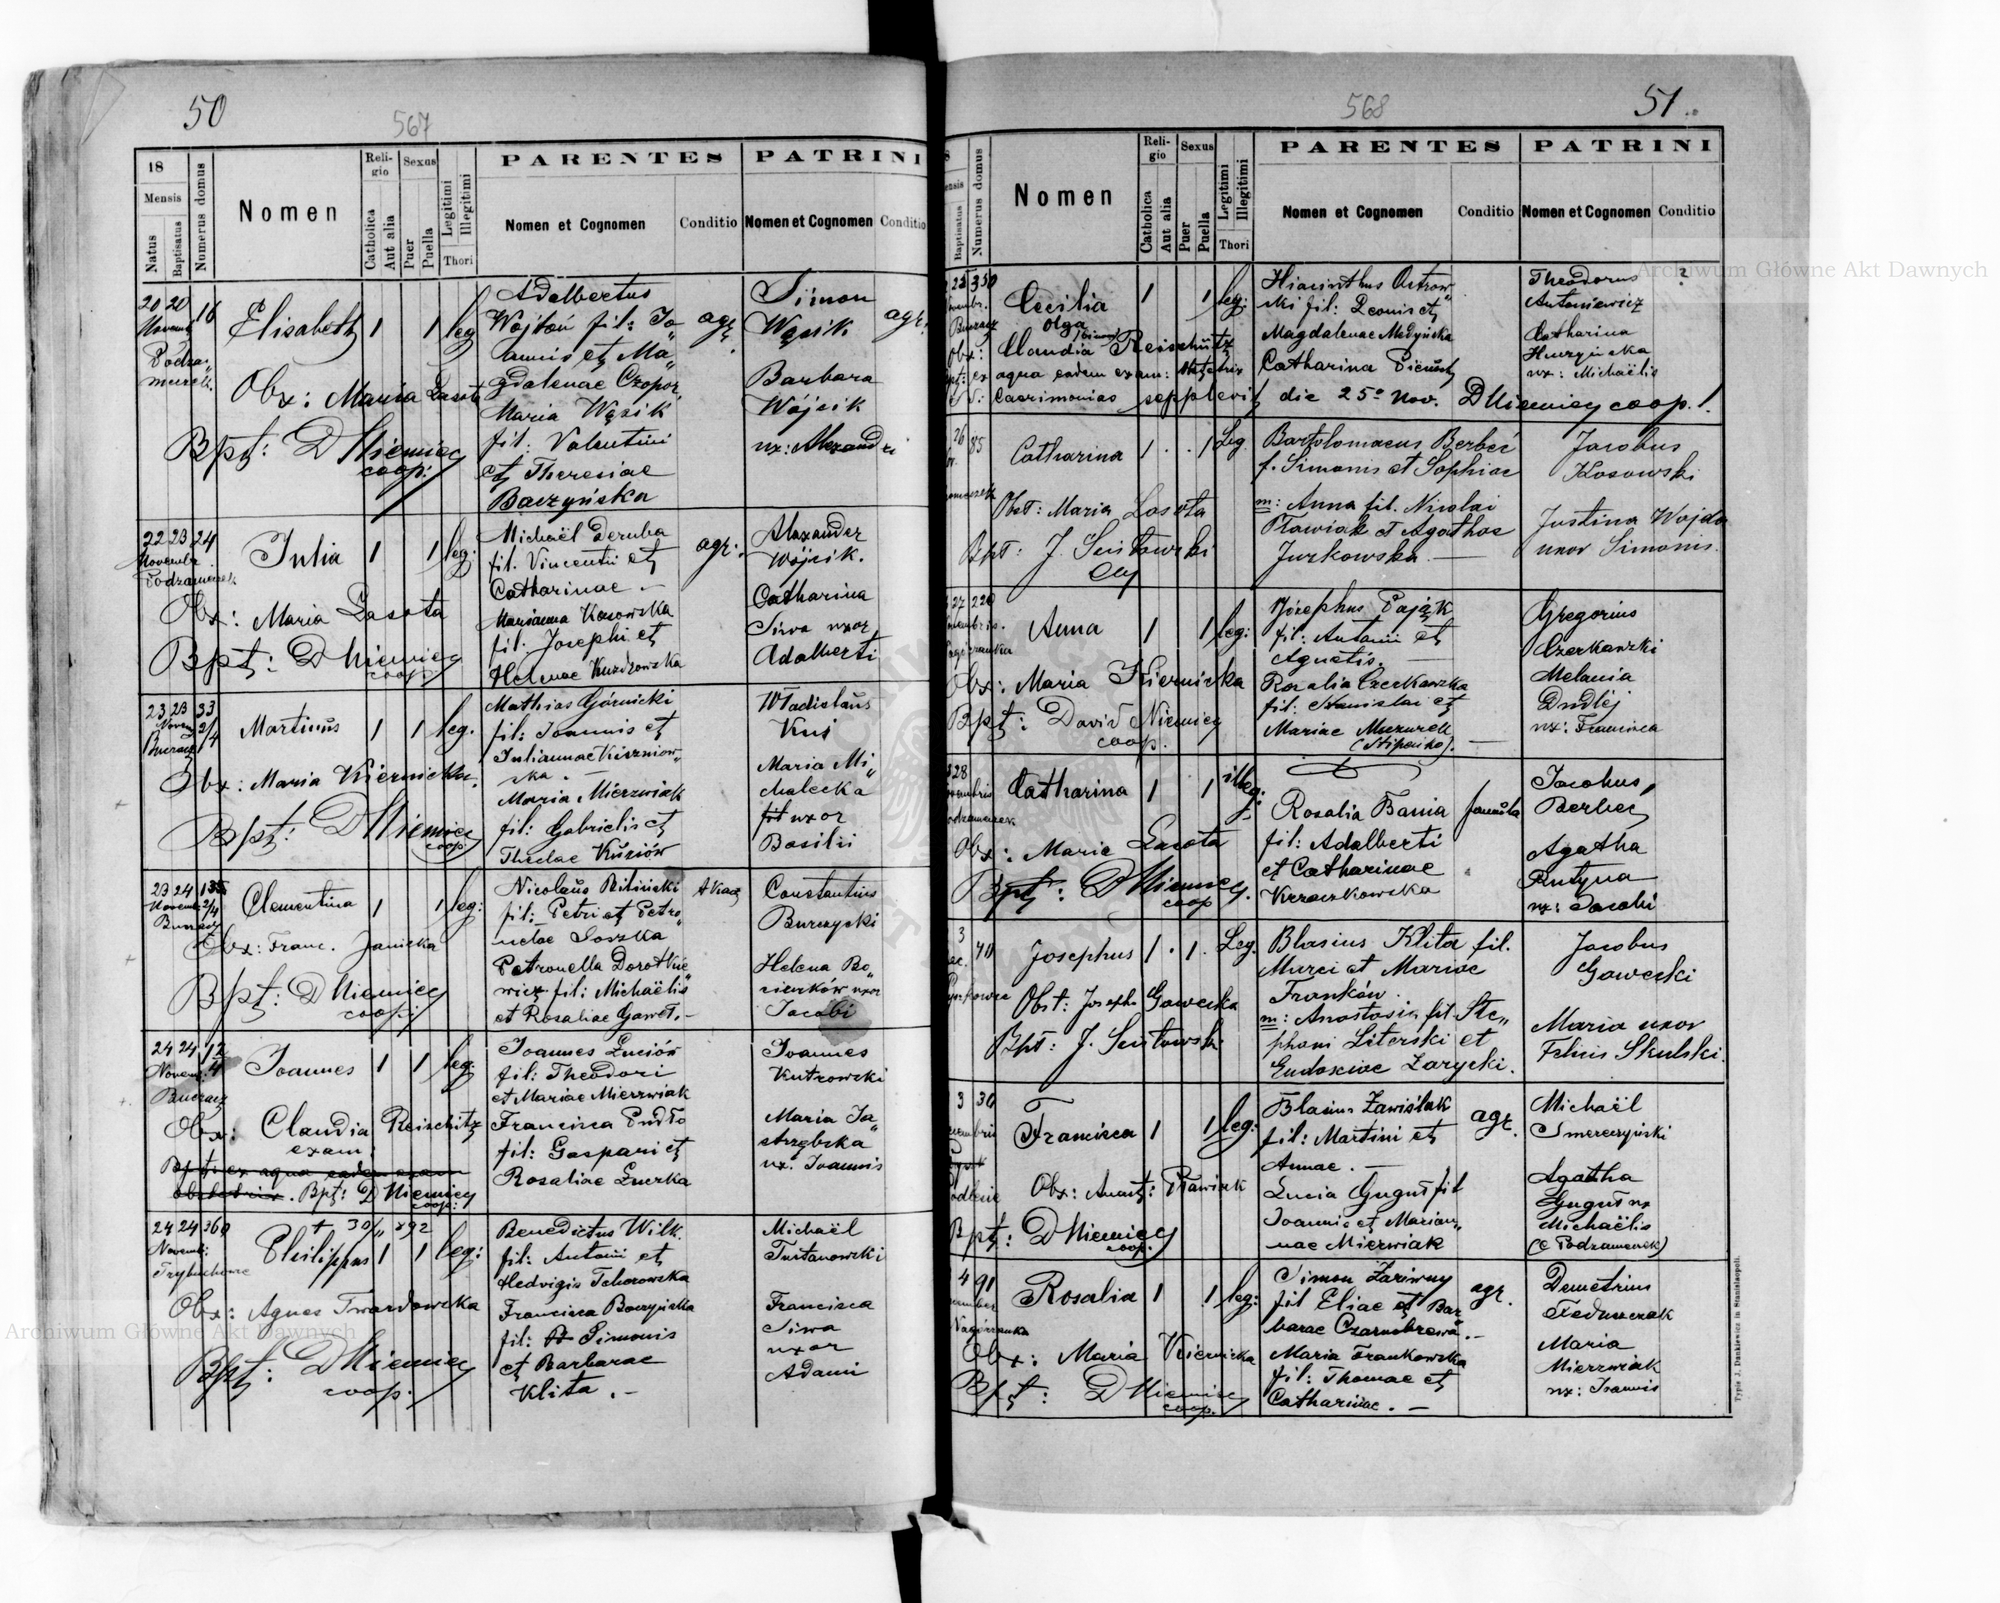 50
567
18
Mensis
Natus
Baptisatus
Numerus domus
Nomen
Religio
Catholica
Aut alia
Sexus
Puer
Puella
Legitimi
Illegitimi
Thori
PARENTES
Nomen et Cognomen
Conditio
PATRINI
Nomen et Cognomen
Conditio
20 20 16
Elisabeth 1 1 leg
Obx: Maria Lasota
Bpt: D Niemiec
coop:
Adalbertus
Wojtoń fil: Jo„
annis et Ma„
gdalenae Czopor
Maria Wąsik
fil: Valentini
et Theresiae
Baczyńska
agr.
Simon
Wąsik
agr.
Barbara
Wójcik
ux: Alexandri
22 23 24
Novembr
Podzameczek
Julia 1 1 leg:
Obx: Maria Lasota
Bpt: D Niemiec
coop
Michaël Deruba
fil. Vincentii et
Catharinae. —
Marianna Kosowska
fil. Josephi et
Helenae Kurdzowska
agr:
Alexander
Wójcik.
Catharina
Siwa uxor
Adalberti
23 23 33
Novem 2/4
Buczacz
Martinus 1 1 leg.
Obx: Maria Kiernicka
Bpt: D Niemiec
coop
Mathias Górnicki
fil: Joannis et
Juliannae Kiszniow„
ska. —
Maria Mierzwiak
fil: Gabrielis et
Theclae Kuziów
Wladislaus
Kuś
Maria Mi„
chalecka
fil uxor
Basilii
23 24 135
Novemb: 2/4
Buczacz
Clementina 1 1 leg:
Obx: Franc. Janicka
Bpt: D Niemiec
coop:
Nicolaus Biliński
fil: Petri et Petro„
nelae Soszka
Petronella Dorotkie„
wicz fil: Michaëlis
et Rosaliae Gaweł. —
Constantius
Burczycki
Helena Bo„
Jacobi
24 24 12
Novem: 4
Buczacz
Joannes 1 1 leg:
Obx: Claudia Reischitz
exam:
Bpt: ex aqua eadem exam
obstetrix. Bpt: D Niemiec
coop:
Joannes Luciów
fil: Theodori
et Mariae Mierzwiak
Francisca Pudło
fil: Gaspari et
Rosaliae Zuerka
Joannes
Kutrowski
Maria Ja„
strzębska
ux. Joannis
24 24 360
Novemb:
Trybuchowce
† 30/11 892
Philippus 1 1 leg:
Obx: Agnes Twardowska
Bpt: D Niemiec
coop.
Benedictus Wilk.
fil: Antoni et
Hedvigis Tchorowska
Francisca Baczyńska
fil: Simonis
et Barbarae
Klita. —
Michaël
Turtanowski
Francisca
Siwa
uxor
Adami
51
568
Baptisatus
Numerus domus
Nomen
Religio
Catholica
Aut alia
Sexus
Puer
Puella
Legitimi
Illegitimi
Thori
PARENTES
Nomen et Cognomen
Conditio
PATRINI
Nomen et Cognomen
Conditio
25 350
Cecilia 1 1 leg:
Olga
Obx: Claudia Reischütz
aqua eadem exam: obstetrix
Caerimonias supplevit die 25º Nov. D Niemiec coop.
Hiacinthus Ostrow„
ski fil: Leonis et
Magdalenae Medyńska
Catharina
Theodorus ?
Antoniewicz
Catharina
Huczyńska
ux: Michaëlis
26 85
Catharina 1 . . 1 Leg
Obst: Maria Lasota
Bpt: J. Scisłowski
Bartolomaeus Berbeć
f. Simonis et Sophiae
m: Anna fil. Nicolai
Pławiak et Agathae
Jurkowska —
Jacobus
Kosowski
Justina Wojda
uxor Simonis.
27 220
Anna 1 1 leg:
Obx: Maria Kiernicka
Bpt: David Niemiec
coop.
Josephus Pająk
fil: Antonii et
Agnetis. —
Rosalia Czerkawska
fil: Stanislai et
Mariae Mazurek
Gregorius
Czerkawski
Melania
Dudlej
ux: Francisca
28
Catharina 1 1 illeg:
Obx: Maria Lasota
Bpt: D Niemiec.
coop
Rosalia Bania famula
fil: Adalberti
et Catharinae
Krzaczkowska
Jacobus
Berbeć
Agatha
Putyna
ux: Jacobi
3 40
Josephus 1 . 1. Leg
Obst: Josepha Gawecka
Bpt: J. Scisłowski
Blasius Klita fil.
Marci et Mariae
Franków.
m: Anastasia fil. Ste„
phani Literski et
Eudoxiae Zarycki.
Jacobus
Gawecki
Maria uxor
Felicis Skulski.
3 30
Francisca 1 1 leg:
Obx: Anast: Pławiak
Bpt: D Niemiec
coop:
Blasius Zawiślak
fil: Martini et
Annae. —
Lucia Guguł fil
Joannis et Marian„
nae Mierzwiak
agr.
Michaël
Smereczyński
Agatha
Guguł ux
Michaëlis
(e Podzameczek)
4 91
Nagórzanka
Rosalia 1 1 leg:
Obx: Maria Kiernicka
Bpt: D Niemiec
coop.
Simon Zariwny
fil Eliae et Bar„
barae Czarnobrewa. —
Maria Frankowska
fil: Thomae et
Catharinae. —
agr.
Demetrius
Fedurczak
Maria
Mierzwiak
ux: Joannis
Typis J. Dankiewicz in Stanislaopoli.
Archiwum Główne Akt Dawnych
Archiwum Główne Akt Dawnych